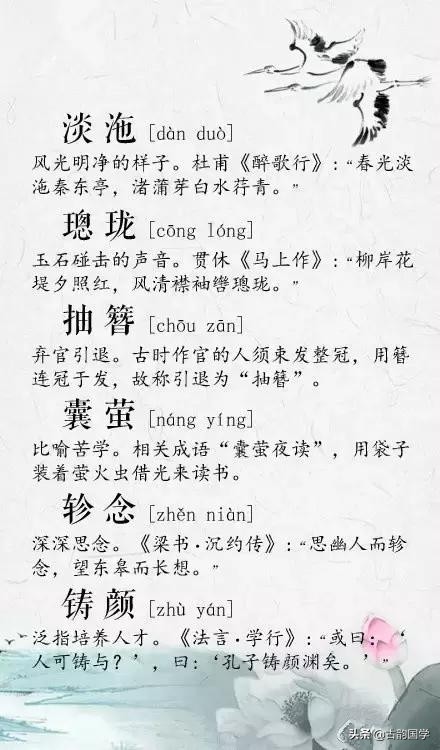 淡沲 [dàn duò]
风光明净的样子。杜甫《醉歌行》:“春光淡
沲秦东亭，渚蒲芽白水荇青。”
璁珑 [cōng lóng]
玉石碰击的声音。贯休《马上作》:“柳岸花
堤夕照红，风清襟袖辔璁珑。”
抽簪 [chōu zān]
弃官引退。古时作官的人须束发整冠，用簪
连冠于发，故称引退为“抽簪”。
囊萤 [náng yíng]
比喻苦学。相关成语“囊萤夜读”，用袋子
装着萤火虫借光来读书。
轸念 [zhěn niàn]
深深思念。《梁书·沉约传》:“思幽人而轸
念，望东皋而长想。”
铸颜 [zhù yán]
泛指培养人才。《法言·学行》:“或曰:‘
人可铸与?’，曰:‘孔子铸颜渊矣。’”
头条@古韵国学